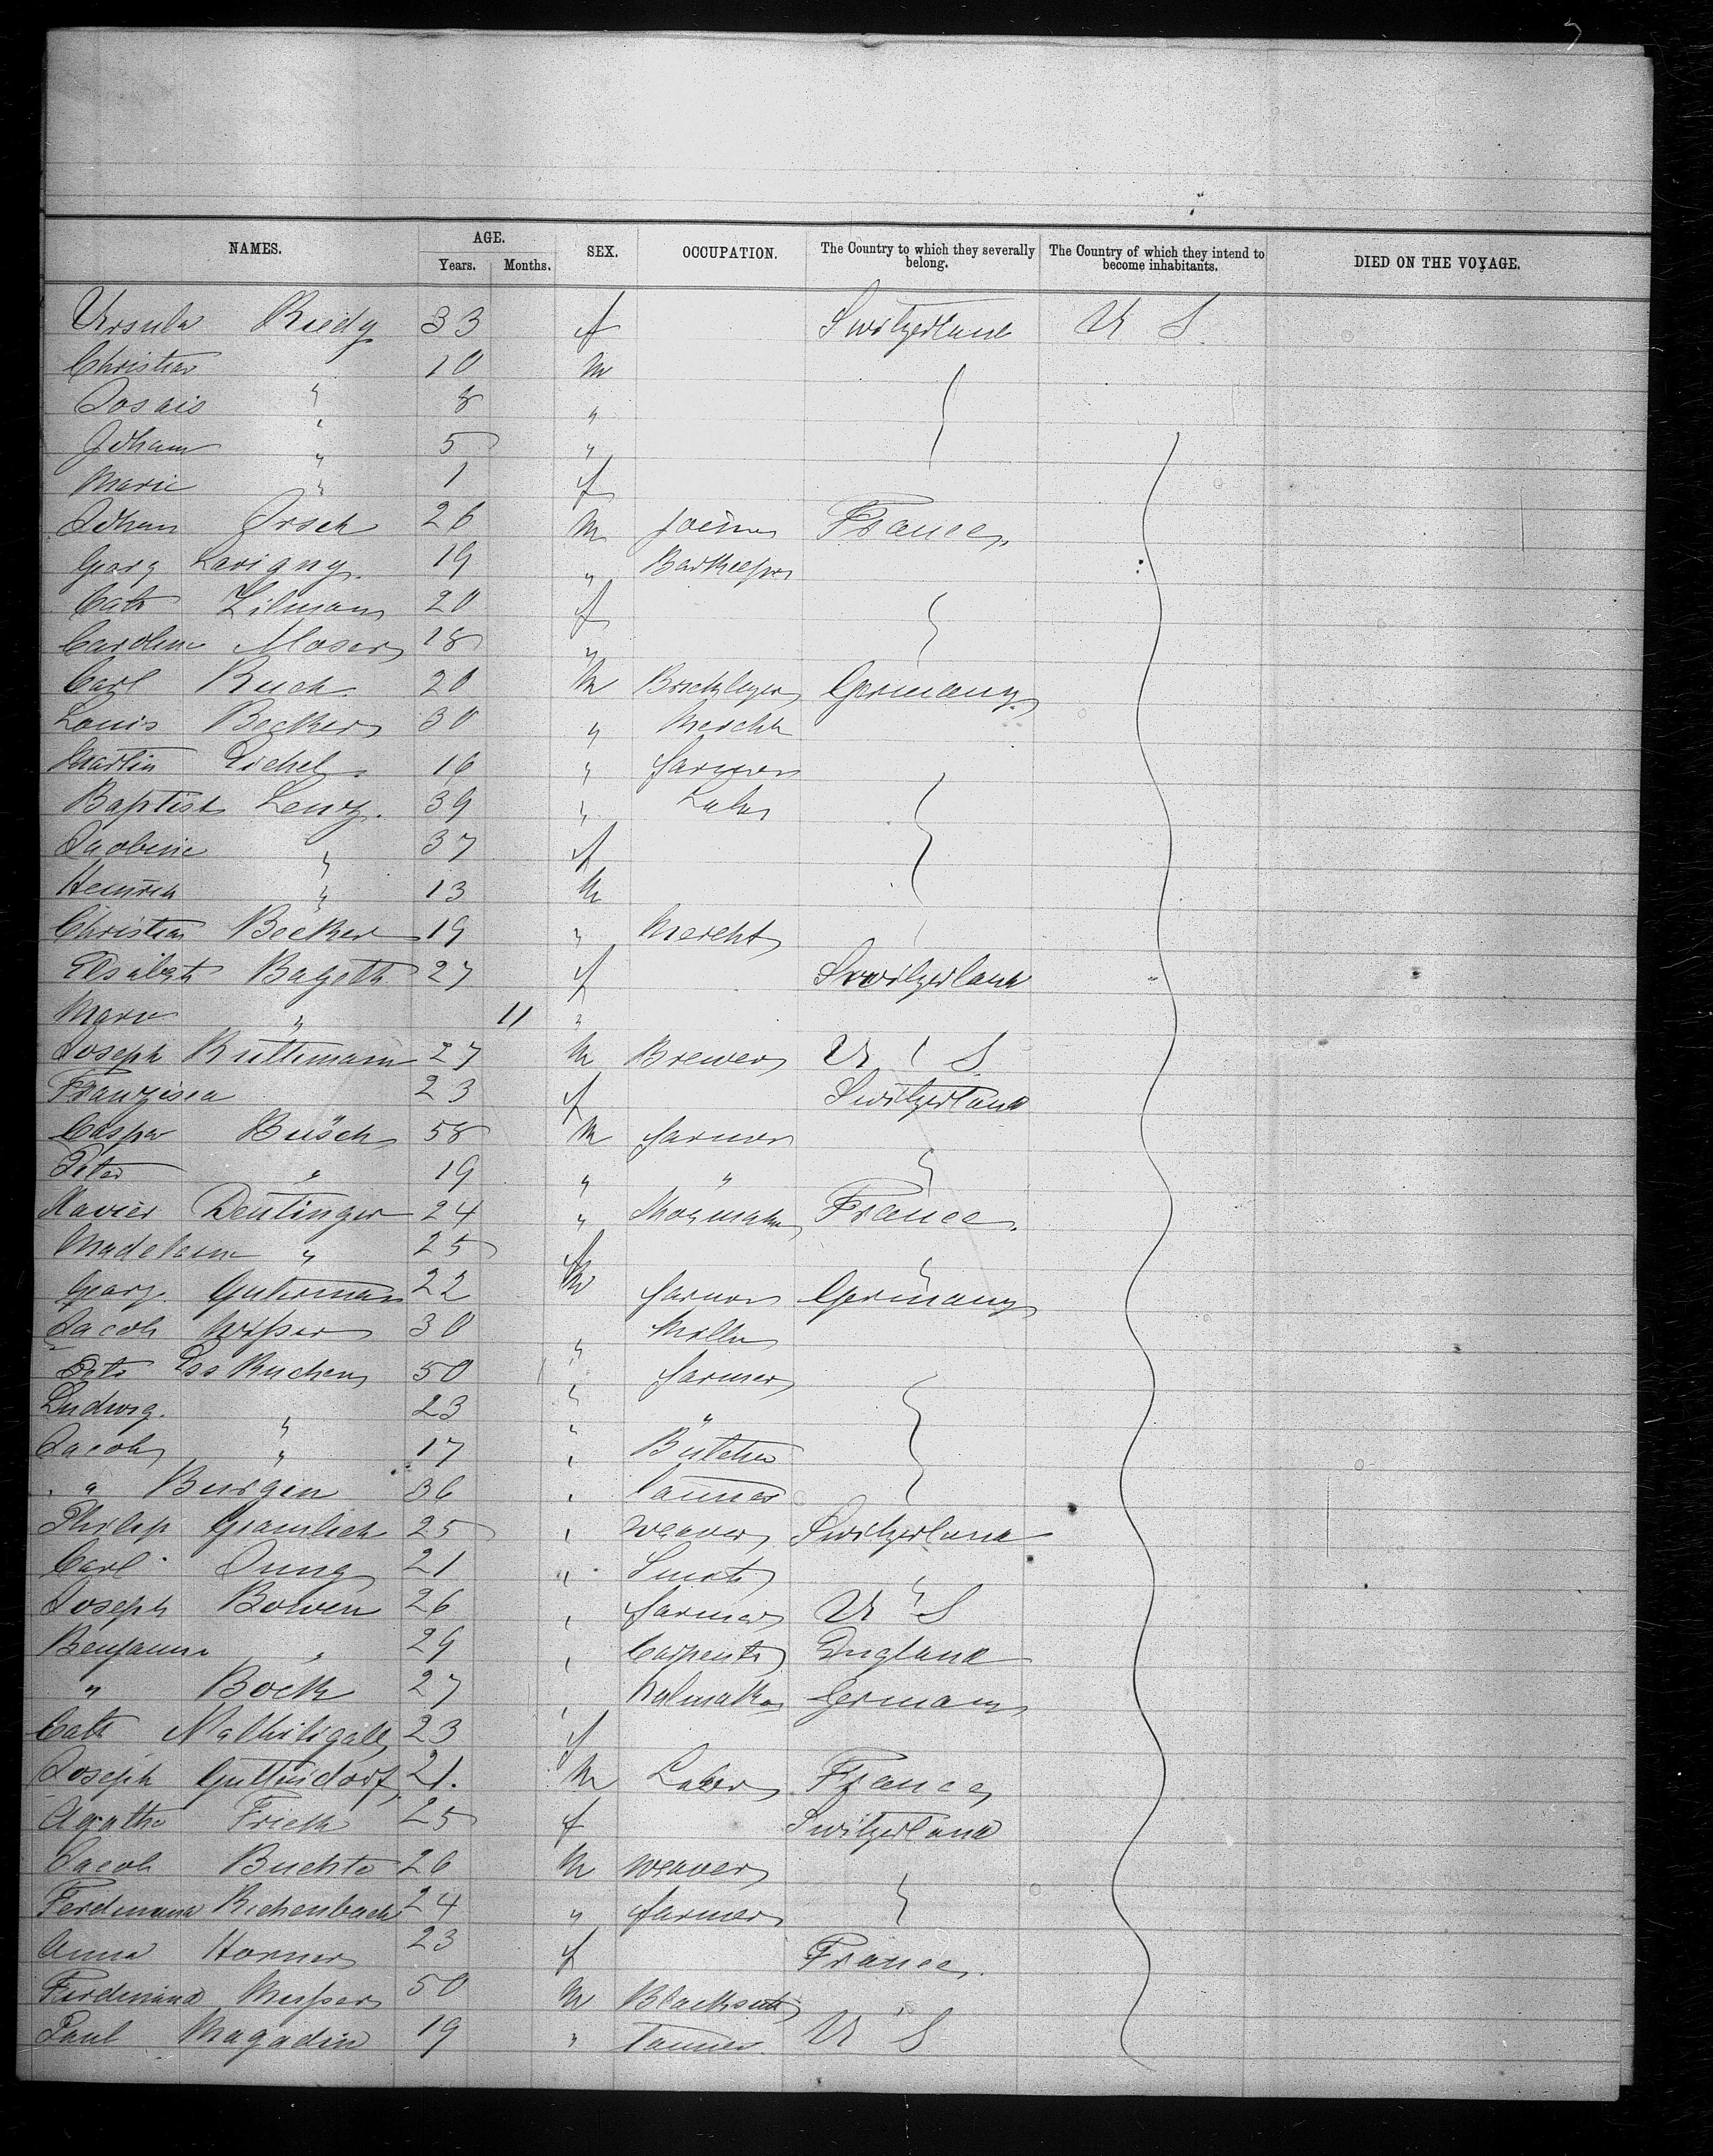 NAMES. AGE. SEX. OCCUPATION. The Country to which they severally belong. The Country of which they intend to become inhabitants. DIED ON THE VOYAGE.
Years. Months.
Ursula Riedy 33 f Switzerland U S
Christian 10 m
Josais " 8 "
Johann " 5 "
Marie " 1 f
Johann Orsch 26 m joiner France
Georg Lavigny 19 " Barkeeper
Cath Lilmann 20 f
Caroline Moser 18 "
Carl Ruch 20 m Bricklayer Germany
Louis Becker 30 " Mercht
Martin Eichel 16 " farmer
Baptist Lenz. 39 " Labr
Jacobine " 37 f
Heinrich " 13 m
Christian Becker 19 " Mercht
Elsabeth Bagoth 27 f Switzerland
Marie " 11 "
Joseph Ruttimann 27 m Brewer U S
Franzisca 23 f Switzerland
Caspar Büsch 58 m farmer
Peter " 19 " "
Xavier Deutinger 24 " France
Madelaine " 25 f
Georg Guhrman 22 m farmer Germany
Jacob 30 " Miller
Peter Esskuchen 50 " farmer
Ludwig " 23 " "
Jacob " 17 " Butcher
" Burgin 36 " Tanner
Philip Gramlich 25 " weaver Switzerland
Carl Jung 21 " Smith
Joseph Bowen 26 " farmer U " S
Benjamin " 29 " Carpenter England
" Bock 27 " Germany
Cath 23 f
Joseph Guttendorf 21. m Labor France
Agatha Frick 25 f Switzerland
Jacob Buchte 26 m weaver
Ferdinand Richenbach 24 " farmer
Anna Horner 23 f France
Ferdinand Musser 50 m Blacksmith
Paul Magadin 19 " Tanner U S